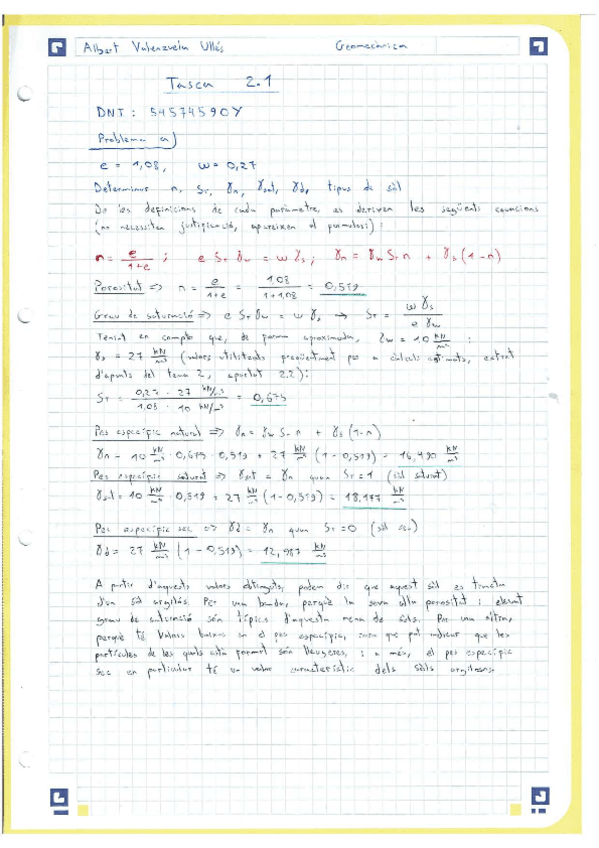 Albert Valenzuela Ullés Geomecànica
Tasca 2.1
DNI: 54574590Y
Problema a)
e = 1,08, w = 0,27
Determinar n, Sr, γn, γsat, γd, tipus de sòl
De les definicions de cada paràmetre, es deriven les següents equacions
(no necessiten justificació, apareixen al formulari):
n = e/(1+e) ; e Sr γw = w γs ; γn = γw Sr n + γs (1-n)
Porositat => n = e/(1+e) = 1,08/(1+1,08) = 0,519
Grau de saturació => e Sr γw = w γs → Sr = w γs/(e γw)
Tenint en compte que, de forma aproximada, γw = 10 kN/m³ i
γs = 27 kN/m³ (valors utilitzats freqüentment per a càlculs estimats, extret
d'apunts del tema 2, apartat 2.2):
Sr = (0,27 · 27 kN/m³)/(1,08 · 10 kN/m³) = 0,675
Pes específic natural => γn = γw Sr n + γs (1-n)
γn = 10 kN/m³ · 0,675 · 0,519 + 27 kN/m³ (1-0,519) = 16,490 kN/m³
Pes específic saturat => γsat = γn quan Sr = 1 (sòl saturat)
γsat = 10 kN/m³ · 0,519 + 27 kN/m³ (1-0,519) = 18,177 kN/m³
Pes específic sec => γd = γn quan Sr = 0 (sòl sec)
γd = 27 kN/m³ (1-0,519) = 12,987 kN/m³
A partir d'aquests valors obtinguts, podem dir que aquest sòl es tracta
d'un sòl argilós. Per una banda, perquè la seva alta porositat i elevat
grau de saturació són típics d'aquesta mena de sòls. Per una altra,
perquè té valors baixos en el pes específic, cosa que pot indicar que les
partícules de les quals està format són lleugeres, i a més, el pes específic
sec en particular té un valor característic dels sòls argilosos.